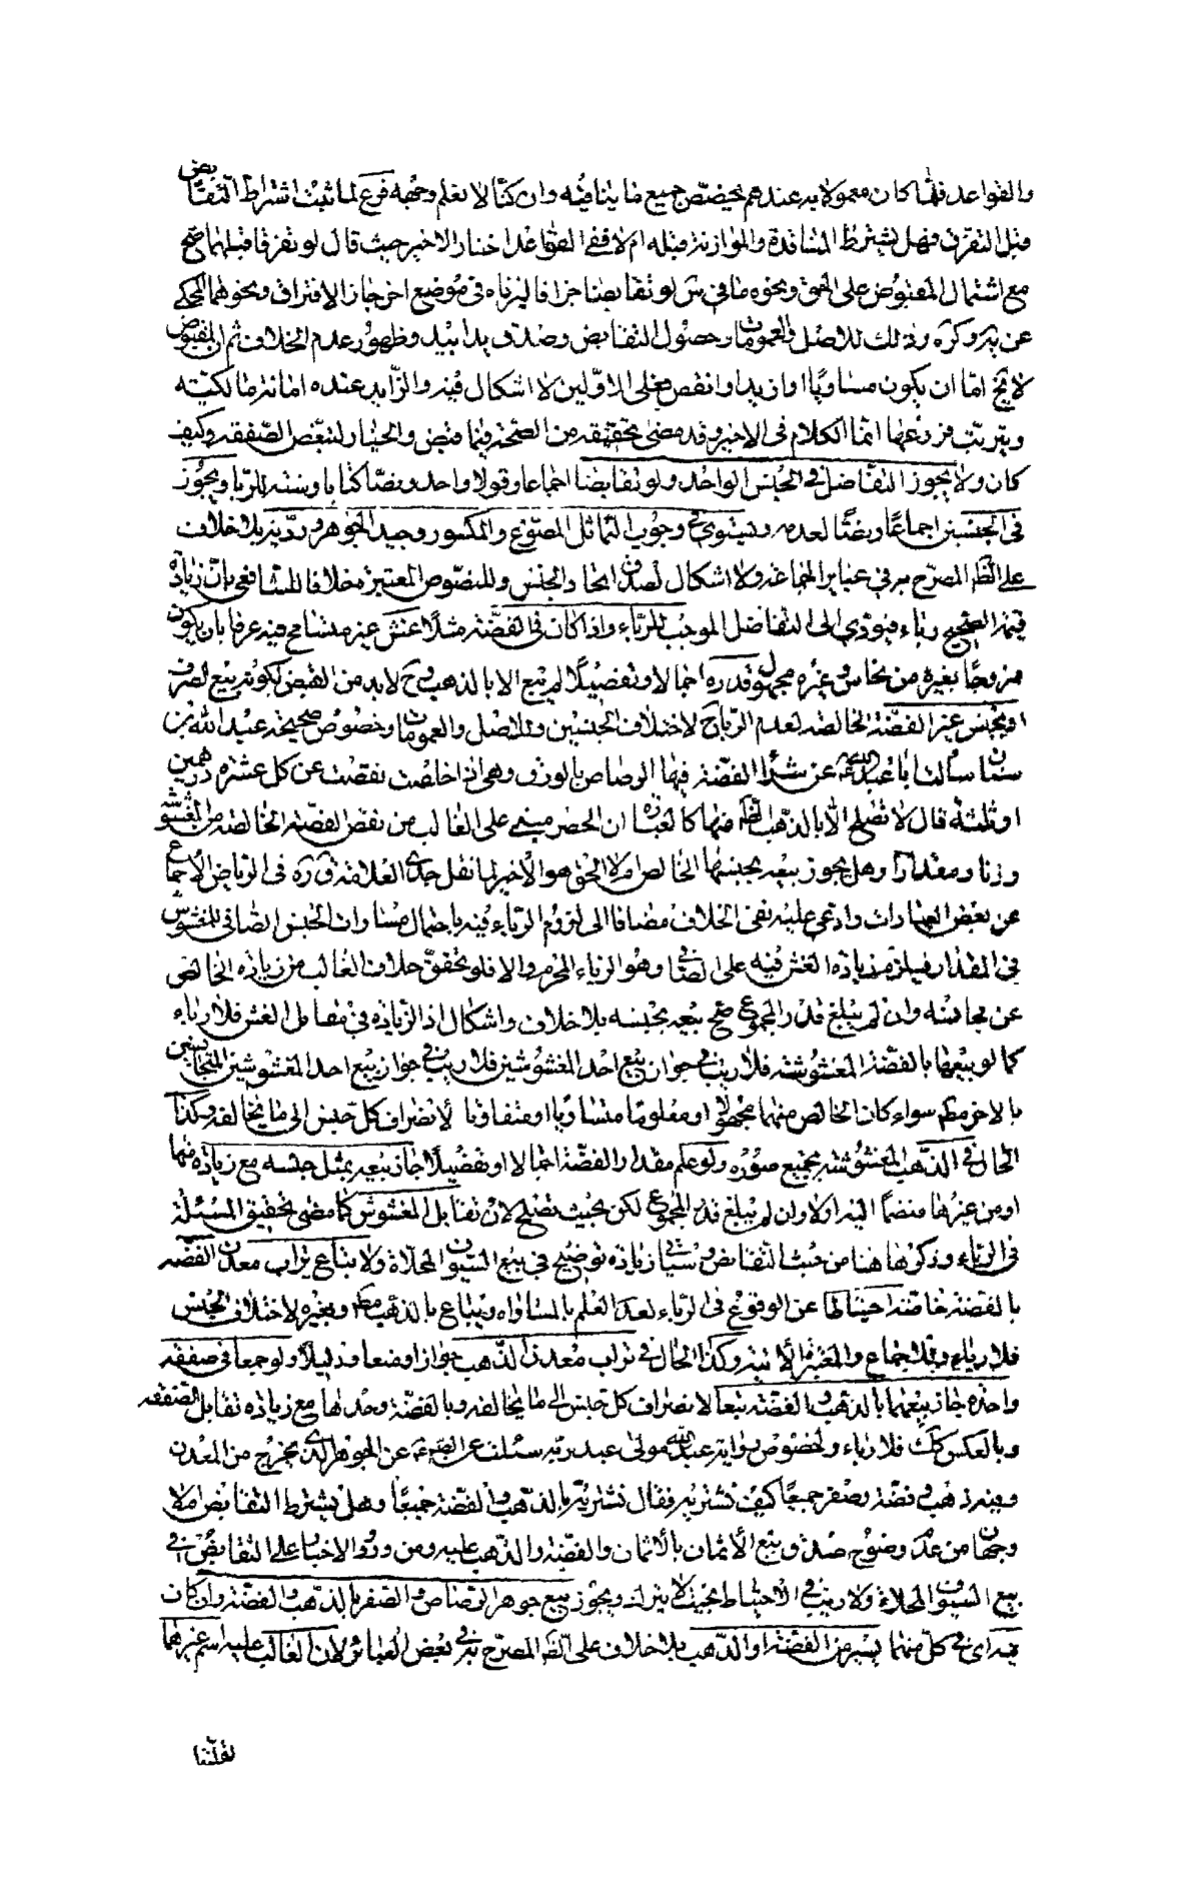 والقواعد فلما كان معمولا به عندهم يخصص جميع ما ينافيه وان كنا لا نعلم وجهه فرع لما ثبت اشتراط التقابض
قبل التفرق فهل يشترط المناقدة والموازنة قبله ام لا ففي القواعد اختار الاخير حيث قال لو تفرقا قبلهما صح
مع اشتمال المقبوض على الحق ونحوه ما في س لو تقابضا جزافا ليزناه في موضع اخر جاز الافتراق ونحوهما المحكي
عن ير وكره وذلك للاصل والعمومات وحصول التقابض وصدق يدا بيد وظهور عدم الخلاف ثم ان المقبوض
لا يخ اما ان يكون مساويا او ازيد او انقص فعلى الاولين لا اشكال فيه والزايد عنده امانة مالكية
ويترتب فروعها انما الكلام في الاخير وقد مضى تحقيقه من الصحة فيما قبض والخيار لتبعض الصفقة وكيف
كان ولا يجوز التفاضل في الجنس الواحد ولو تقابضا اجماعا وقولا واحدا ونصا كتابا وسنة للربا ويجوز
في الجنسين اجماعا ونصا لعدمه ويستوي في وجوب التماثل المصنوع والمكسور وجيد الجوهر ورديه بلا خلاف
على الظ المصرح به في عباير الجماعة ولا اشكال لصدق اتحاد الجنس وللنصوص المعتبرة خلافا للشافعي بان زيادة
قيمة الصحيح رباء فيؤدي الى التفاضل الموجب للرباء واذا كان في الفضة مثلا غش غير متسامح فيه عرفا بان يكون
ممزوجا بغيره من نحاس وغيره مجهول قدره اجمالا وتفصيلا لم يبع الا بالذهب وح لا بد من القبض لكونه بيع الصرف
او بجنس غير الفضة الخالصة لعدم الربا ح لاختلاف الجنسين وللاصل والعمومات وخصوص صحيحة عبد الله بن
سنان سألنا ابا عبد الله ع عن شراء الفضة فيها الرصاص بالورق وهي اذا خلصت نقصت عن كل عشرة درهمين
او ثلثة قال لا تصلح الا بالذهب الظ منها كالعبارة ان الحصر مبني على الغالب من نقص الفضة الخالصة من المغشوشة
وزنا ومقدارا وهل يجوز بيعه بجنسها الخالص ام لا الحق هو الاخير لما نقل جدي العلامة ق ره في الرياض الاجماع
عن بعض العبارات وادعي عليه نفي الخلاف مضافا الى لزوم الرباء فيه باحتمال مساوات الجنس الصافي للمغشوش
في المقدار فيلزم زيادة الغش فيه على الصافي وهو الرباء المحرم والا فلو تحقق خلاف الغالب من زيادة الخالص
عن مجانسه وان لم يبلغ قدر المجموع صح بيعه بجنسه بلا خلاف واشكال اذ الزيادة في مقابل الغش فلا رباء
كما لو بيعها بالفضة المغشوشة فلا ريب في جواز بيع احد المغشوشين فلا ريب في جواز بيع احد المغشوشين المتجانسين
بالاخر مط سواء كان الخالص منهما مجهولا او معلوما متساويا او متفاوتا لانصراف كل جنس الى ما يخالفه وكذا
الحال في الذهب المغشوشة بجميع صوره ولو علم مقدار الفضة اجمالا او تفصيلا جاز بيعه بمثل جنسه مع زيادة منها
او من غيرها منضما اليه اولا وان لم يبلغ قدر المجموع لكن بحيث تصلح لان تقابل المغشوش كما مضى تحقيق المسئلة
في الرباء وذكرها هنا من حيث التقابض وسيأتي زيادة توضيح في بيع السيوف المحلاة ولا يباع تراب معدن الفضة
بالفضة خاصة احتياطا عن الوقوع في الرباء لعدم العلم بالمساواة ويباع بالذهب مط وبغيره لاختلاف الجنس
فلا رباء وللاجماع والمعتبرة الاتية وكذا الحال في تراب معدن الذهب جوازا ومنعا ودليلا ولو جمعا في صفقة
واحدة جاز بيعهما بالذهب والفضة تبعا لانصراف كل جنس الى ما يخالفه وبالفضة وحدها مع زيادة تقابل الصفقة
وبالعكس كك فلا رباء ولخصوص رواية عبد الله مولى عبد ربه سئلت عن الصادق ع عن الجوهر الذي يخرج من المعدن
وفيه ذهب وفضة وصفر جميعا كيف نشتريه فقال نشتريه بالذهب والفضة جميعا وهل يشترط التقابض ام لا
وجهان من عدم وضوح صدق وبيع الاثمان بالاثمان والفضة والذهب عليه ومن ورود الاخبار على التقابض في
بيع السيوف المحلاة ولا ريب في الاحتياط بحيث لا يترك ويجوز بيع جوهر الرصاص والصفر بالذهب والفضة وان كان
فيه اي في كل منهما يسير من الفضة او الذهب بلا خلاف على الظ المصرح به في بعض العبائر لان الغالب عليه اسم غيرهما